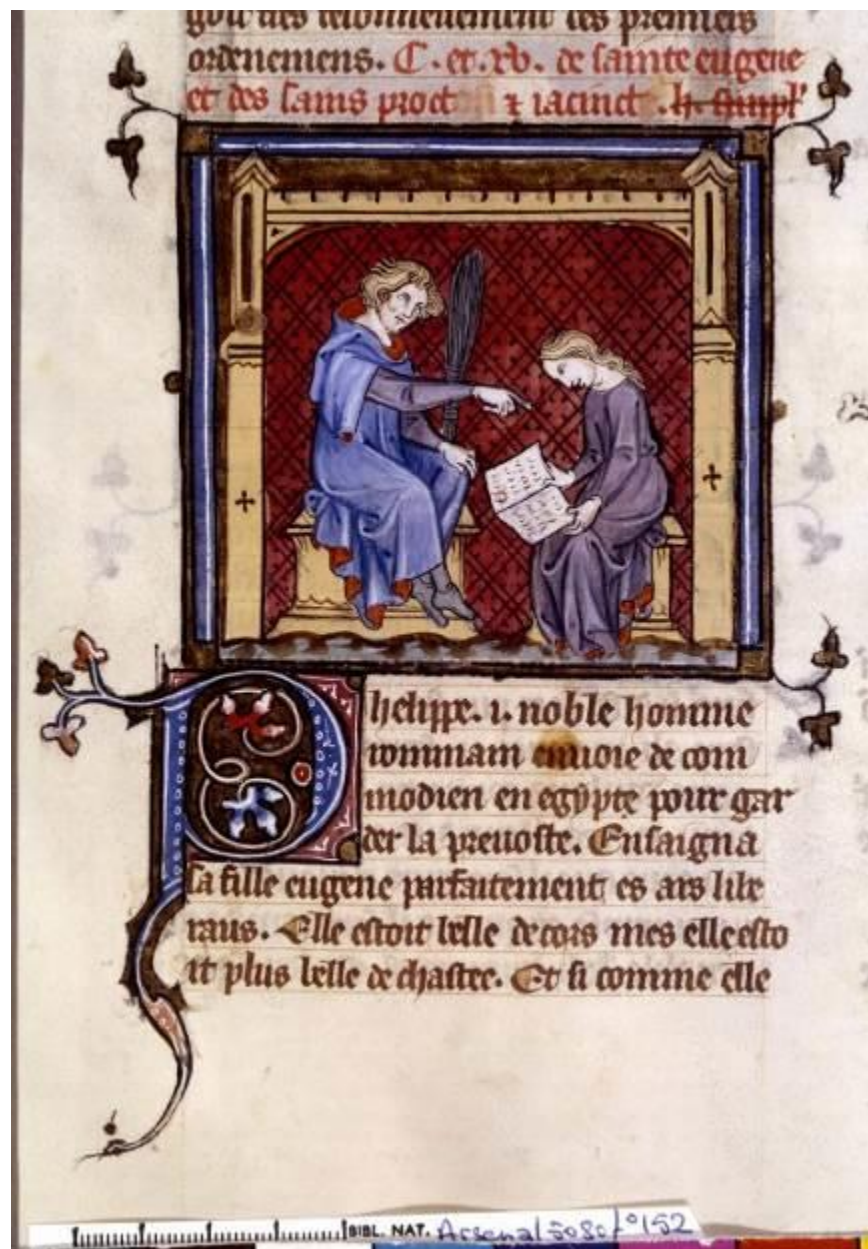 ordenemens. C. et. xv. de sainte eugene
et des sains proct & iacinct.
Phelippe. i. noble homme
rommain enuoie de com
modien en egypte pour gar
der la preuoste. Ensaigna
sa fille eugene parfaitement es ars libe
raus. Elle estoit belle de cors mes elle esto
it plus belle de chastee. Et si comme elle
BIBL. NAT. Arsenal 5080 f° 152